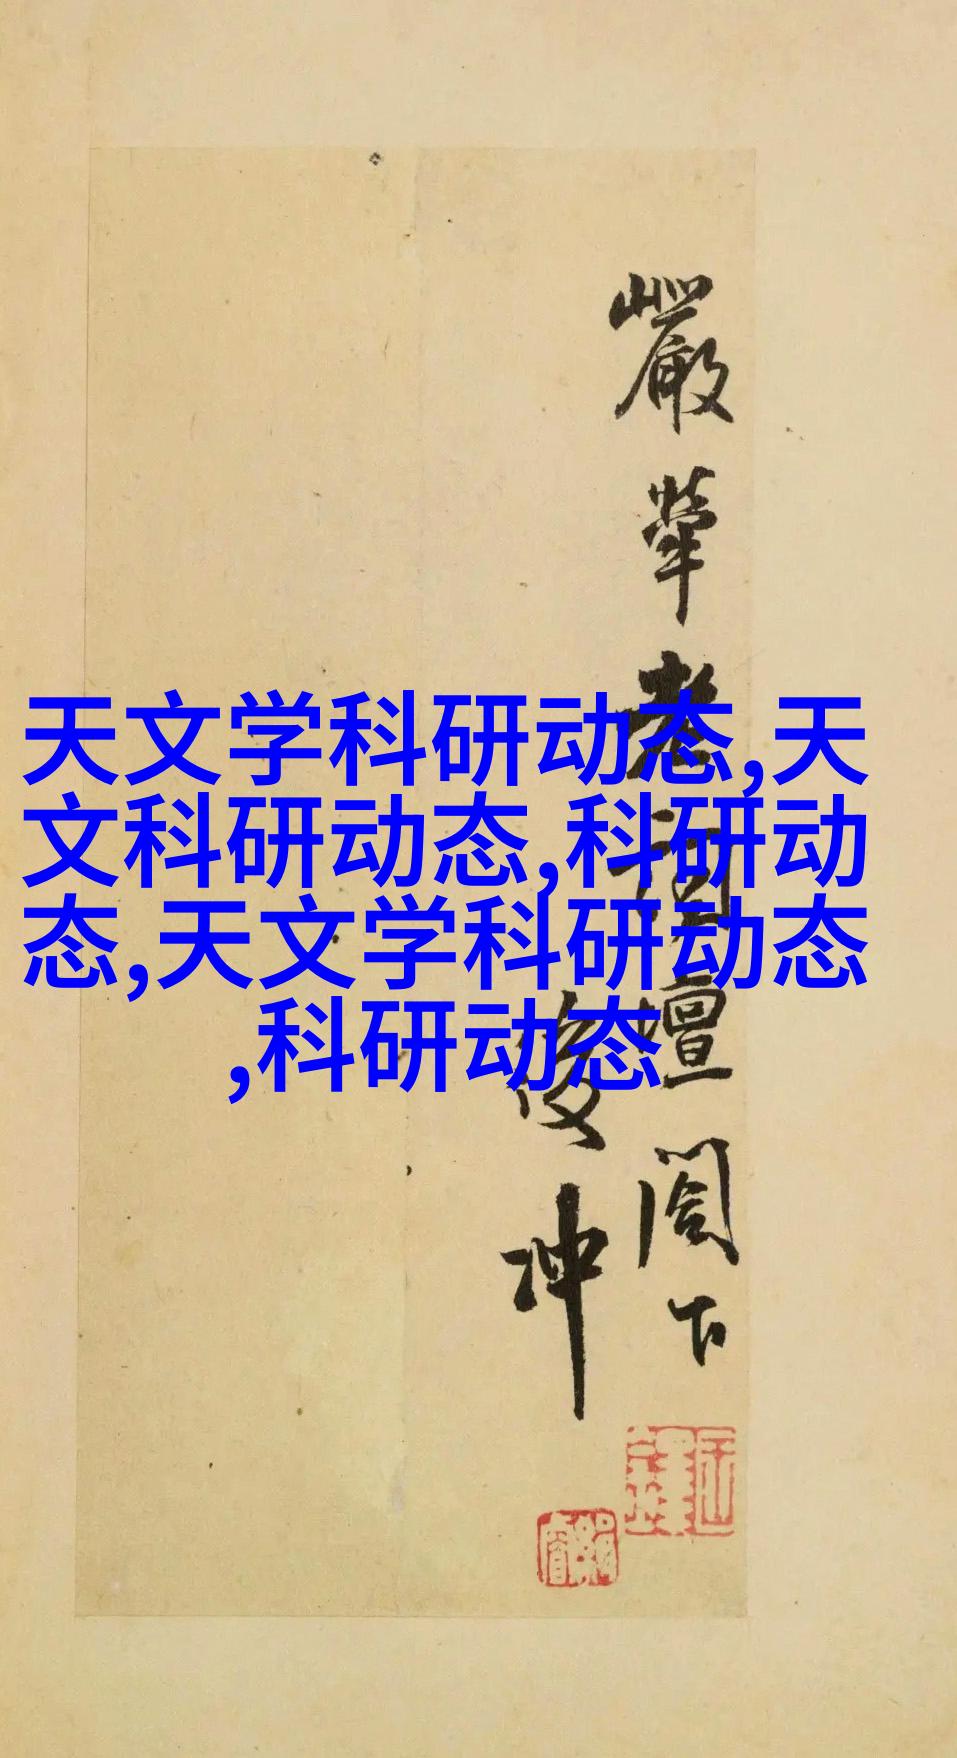 天文学科研动态,天
文科研动态,科研动
态,天文学科研动态
,科研动态
嚴犖老詞壇閣下
俊冲